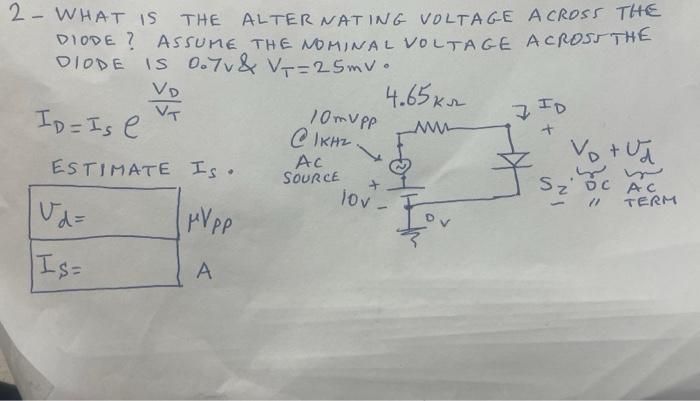 2- WHAT IS THE ALTERNATING VOLTAGE ACROSS THE
DIODE? ASSUME THE NOMINAL VOLTAGE ACROSS THE
DIODE IS 0.7V & VT=25mV.
ID=IS e VD/VT
ESTIMATE IS.
Vd= μVPP
IS= A
10mVPP
@1KHZ
AC
SOURCE
4.65KΩ
ID
+
VD + Vd
DC AC
" TERM
+
10V
-
0V
-